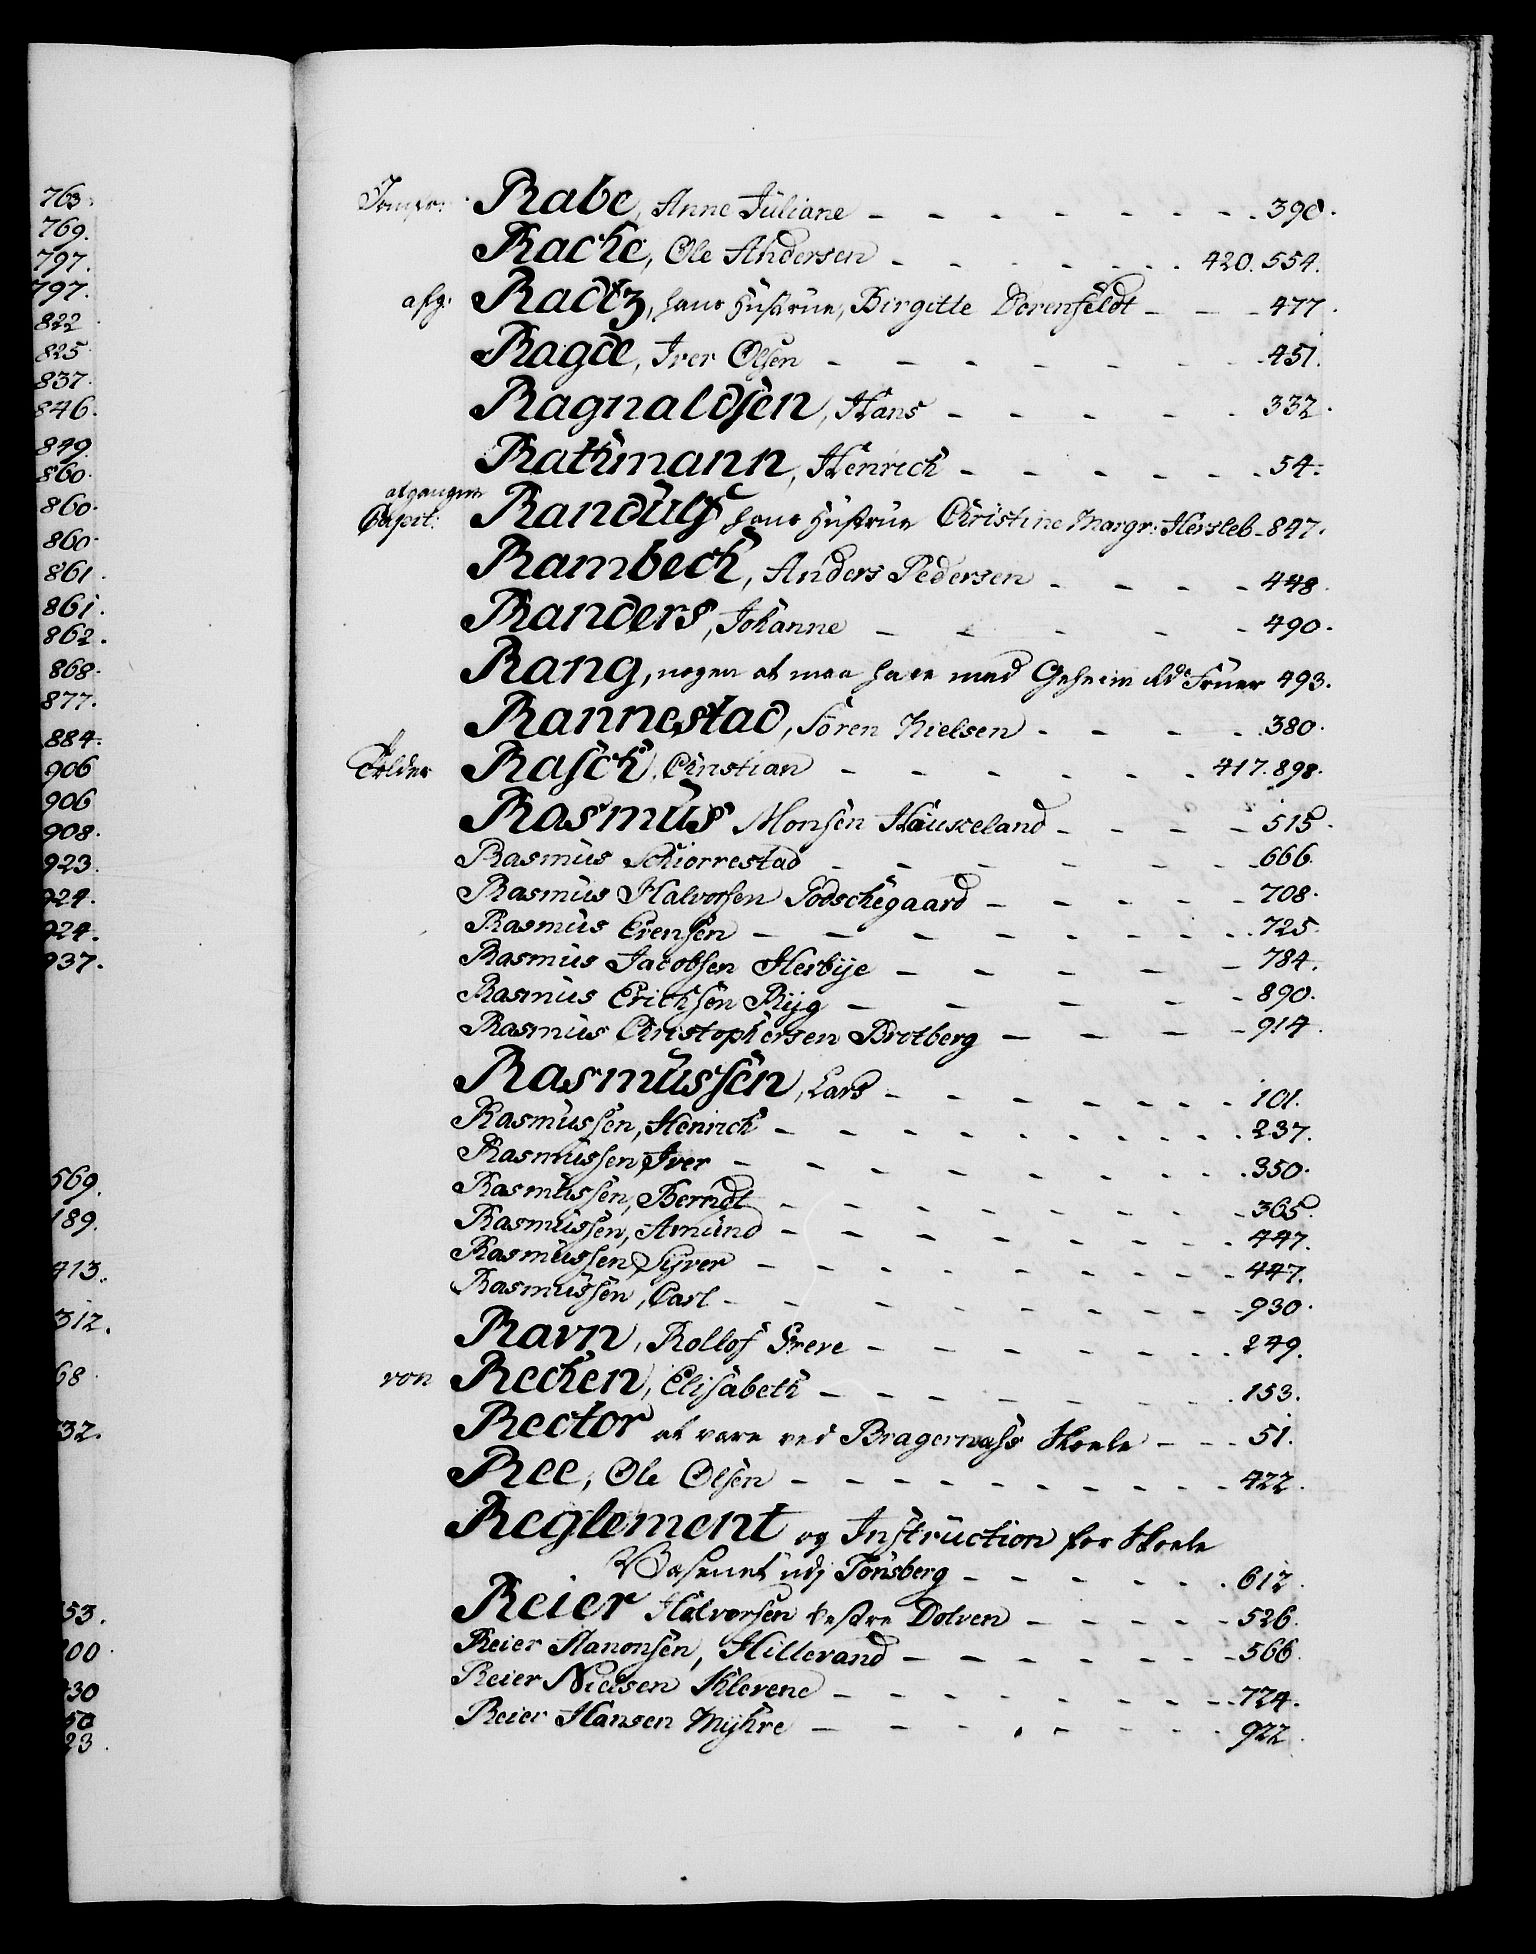 763.
769.
797.
797.
822
825
837.
846.
849.
860.
860.
860.
861.
861.
862.
868.
877.
884.
906
906
908.
923.
924.
924.
937.
569.
189.
413.
312.
68
32.
53.
00.
30
50
23.
Jomfr: Rabe, Anne Juliane - - - - - - - 390.
Racke, Ole Andersen - - - - - - 420. 554.
afg: Radtz, hans Hustrue, Birgitte Dorenfeldt - - - 477.
Ragde, Iver Olsen - - - - - - 451.
Ragnaldsen, Hans - - - - - 332.
Rathmann, Henrich - - - - - - 54.
afgangne
Capit: Randulf hans Hustrue Christine Margr: Hersleb - 847.
Rambech, Anders Pedersen - - - - 448.
Randers, Johanne - - - - - 490.
Rang, nogen at maa have med Geheime Fruer 493.
Rannestad, Sören Nielsen - - - - 380.
Tolder Rasch, Christian - - - - - - 417. 898.
Rasmus Monsen Hauskeland - - - - 515.
Rasmus Schiorrestad - - - - - - 666.
Rasmus Halvorsen Godschegaard - - - - - 708.
Rasmus Erensen - - - - - - - 725.
Rasmus Jacobsen Hesbije - - - - - 784.
Rasmus Erichsen Rijg - - - - - 890.
Rasmus Christophersen Brotberg - - - - 914.
Rasmussen, Lars - - - - - - - 101.
Rasmussen, Henrich - - - - - - - - 237.
Rasmussen, Iver - - - - - - - - 350.
Rasmussen, Berndt - - - - - - - - 365.
Rasmussen, Amund - - - - - - - - 447.
Rasmussen, Sijver - - - - - - - - 447.
Rasmussen, Carl - - - - - - - - 930.
Ravn, Rollof Greve - - - - - - - 249.
von Recken, Elisabeth - - - - - - - 153.
Rector at være ved Bragernæss Skoele - - - 51.
Ree, Ole Olsen - - - - - - - - 422.
Reglement og Instruction for Skoele
Væsenet udj Tönsberg - - - - - - 612.
Reier Halvorsen Vestre Dolven - - - - - 526.
Reier Hanonsen, Hillerand - - - - - - - 566.
Reier Nielsen Klevene - - - - - - - 724.
Reier Hansen Mijhre - - - - - - - 922.